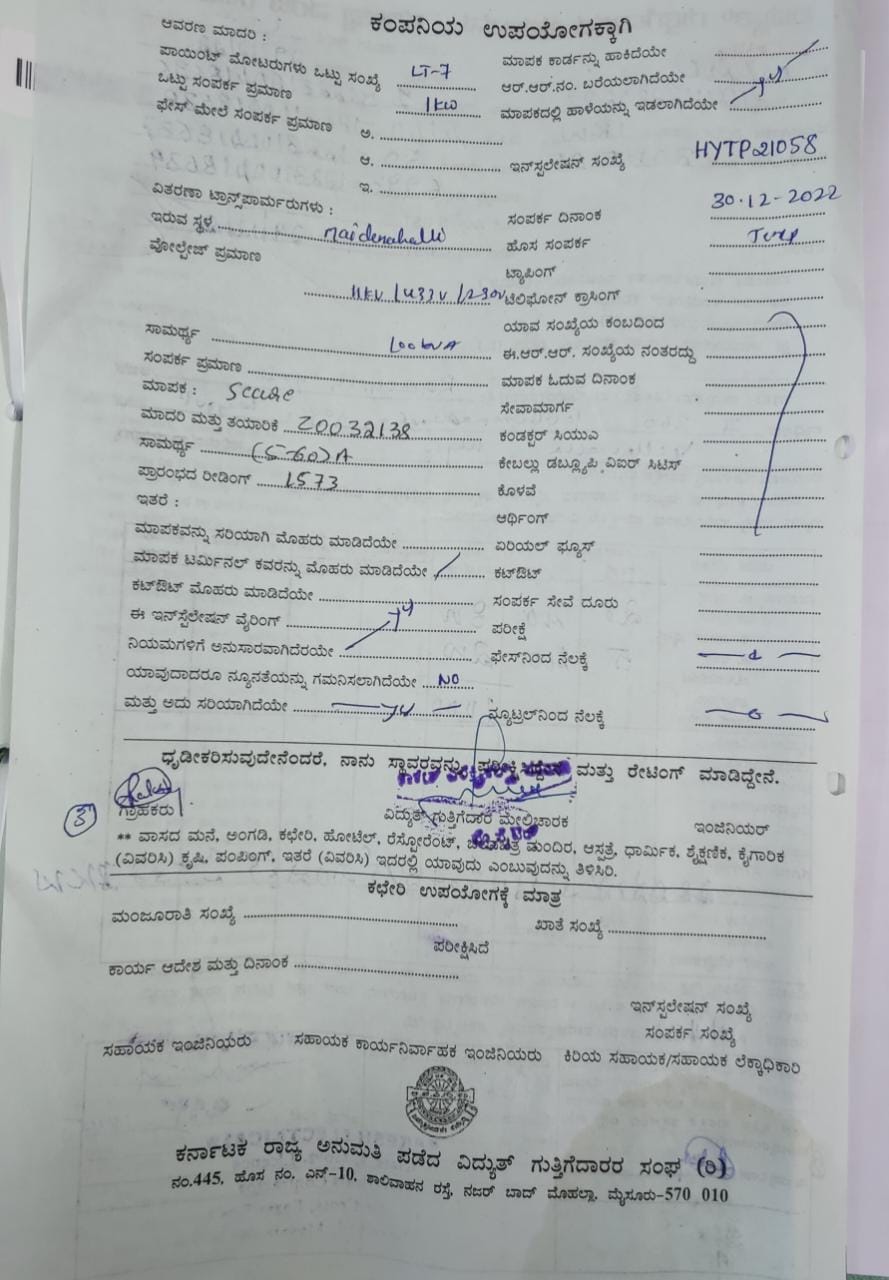 ಕಂಪನಿಯ ಉಪಯೋಗಕ್ಕಾಗಿ
ಆವರಣ ಮಾದರಿ :
ಪಾಯಿಂಟ್ ಮೋಟರುಗಳು ಒಟ್ಟು ಸಂಖ್ಯೆ LT-7
ಒಟ್ಟು ಸಂಪರ್ಕ ಪ್ರಮಾಣ 1KW
ಫೇಸ್ ಮೇಲೆ ಸಂಪರ್ಕ ಪ್ರಮಾಣ
ಅ.
ಆ.
ಇ.
ವಿತರಣಾ ಟ್ರಾನ್ಸ್‌ಪಾರ್ಮರುಗಳು :
ಇರುವ ಸ್ಥಳ Maidenahalli
ವೋಲ್ಟೇಜ್ ಪ್ರಮಾಣ
11KV /433V /230V
ಸಾಮರ್ಥ್ಯ 100KVA
ಸಂಪರ್ಕ ಪ್ರಮಾಣ
ಮಾಪಕ : Secure
ಮಾದರಿ ಮತ್ತು ತಯಾರಿಕೆ Z0032138
ಸಾಮರ್ಥ್ಯ (5-60)A
ಪ್ರಾರಂಭದ ರೀಡಿಂಗ್ 1573
ಇತರೆ :
ಮಾಪಕವನ್ನು ಸರಿಯಾಗಿ ಮೊಹರು ಮಾಡಿದೆಯೇ
ಮಾಪಕ ಟರ್ಮಿನಲ್ ಕವರನ್ನು ಮೊಹರು ಮಾಡಿದೆಯೇ
ಕಟ್‌ಔಟ್ ಮೊಹರು ಮಾಡಿದೆಯೇ
ಈ ಇನ್‌ಸ್ಟಲೇಷನ್ ವೈರಿಂಗ್
ನಿಯಮಗಳಿಗೆ ಅನುಸಾರವಾಗಿದೆರಯೇ
ಯಾವುದಾದರೂ ನ್ಯೂನತೆಯನ್ನು ಗಮನಿಸಲಾಗಿದೆಯೇ NO
ಮತ್ತು ಅದು ಸರಿಯಾಗಿದೆಯೇ
ಮಾಪಕ ಕಾರ್ಡನ್ನು ಹಾಕಿದೆಯೇ
ಆರ್.ಆರ್.ನಂ. ಬರೆಯಲಾಗಿದೆಯೇ
ಮಾಪಕದಲ್ಲಿ ಹಾಳೆಯನ್ನು ಇಡಲಾಗಿದೆಯೇ
ಇನ್‌ಸ್ಟಲೇಷನ್ ಸಂಖ್ಯೆ HYTP21058
ಸಂಪರ್ಕ ದಿನಾಂಕ 30-12-2022
ಹೊಸ ಸಂಪರ್ಕ
ಟ್ಯಾಪಿಂಗ್
ಟೆಲಿಫೋನ್ ಕ್ರಾಸಿಂಗ್
ಯಾವ ಸಂಖ್ಯೆಯ ಕಂಬದಿಂದ
ಈ.ಆರ್.ಆರ್. ಸಂಖ್ಯೆಯ ನಂತರದ್ದು
ಮಾಪಕ ಓದುವ ದಿನಾಂಕ
ಸೇವಾಮಾರ್ಗ
ಕಂಡಕ್ಟರ್ ಸಿಯುಎ
ಕೇಬಲ್ಲು ಡಬ್ಲ್ಯೂಪಿ ವಿಐರ್ ಸಿಟಿಸ್
ಕೊಳವೆ
ಆರ್ಥಿಂಗ್
ಏರಿಯಲ್ ಫ್ಯೂಸ್
ಕಟ್‌ಔಟ್
ಸಂಪರ್ಕ ಸೇವೆ ದೂರು
ಪರೀಕ್ಷೆ
ಫೇಸ್‌ನಿಂದ ನೆಲಕ್ಕೆ
ನ್ಯೂಟ್ರಲ್‌ನಿಂದ ನೆಲಕ್ಕೆ
ಧೃಡೀಕರಿಸುವುದೇನೆಂದರೆ, ನಾನು ಸ್ಥಾವರವನ್ನು ಪರೀಕ್ಷಿಸಿದ್ದೇನೆ ಮತ್ತು ರೇಟಿಂಗ್ ಮಾಡಿದ್ದೇನೆ.
3
ಗ್ರಾಹಕರು ವಿದ್ಯುತ್ ಗುತ್ತಿಗೆದಾರ ಮೇಲ್ವಿಚಾರಕ ಇಂಜಿನಿಯರ್
** ವಾಸದ ಮನೆ, ಅಂಗಡಿ, ಕಛೇರಿ, ಹೋಟೆಲ್, ರೆಸ್ಟೋರೆಂಟ್, ಚಲನಚಿತ್ರ ಮಂದಿರ, ಆಸ್ಪತ್ರೆ, ಧಾರ್ಮಿಕ, ಶೈಕ್ಷಣಿಕ, ಕೈಗಾರಿಕ
(ವಿವರಿಸಿ) ಕೃಷಿ, ಪಂಪಿಂಗ್, ಇತರೆ (ವಿವರಿಸಿ) ಇದರಲ್ಲಿ ಯಾವುದು ಎಂಬುವುದನ್ನು ತಿಳಿಸಿರಿ.
ಕಛೇರಿ ಉಪಯೋಗಕ್ಕೆ ಮಾತ್ರ
ಮಂಜೂರಾತಿ ಸಂಖ್ಯೆ ಖಾತೆ ಸಂಖ್ಯೆ
ಪರೀಕ್ಷಿಸಿದೆ
ಕಾರ್ಯ ಆದೇಶ ಮತ್ತು ದಿನಾಂಕ
ಇನ್‌ಸ್ಟಲೇಷನ್ ಸಂಖ್ಯೆ
ಸಂಪರ್ಕ ಸಂಖ್ಯೆ
ಸಹಾಯಕ ಇಂಜಿನಿಯರು ಸಹಾಯಕ ಕಾರ್ಯನಿರ್ವಾಹಕ ಇಂಜಿನಿಯರು ಕಿರಿಯ ಸಹಾಯಕ/ಸಹಾಯಕ ಲೆಕ್ಕಾಧಿಕಾರಿ
ಕರ್ನಾಟಕ ರಾಜ್ಯ ಅನುಮತಿ ಪಡೆದ ವಿದ್ಯುತ್ ಗುತ್ತಿಗೆದಾರರ ಸಂಘ (ರಿ)
ನಂ.445, ಹೊಸ ನಂ. ಎನ್-10, ಶಾಲಿವಾಹನ ರಸ್ತೆ, ನಜರ್ ಬಾದ್ ಮೊಹಲ್ಲಾ, ಮೈಸೂರು-570 010